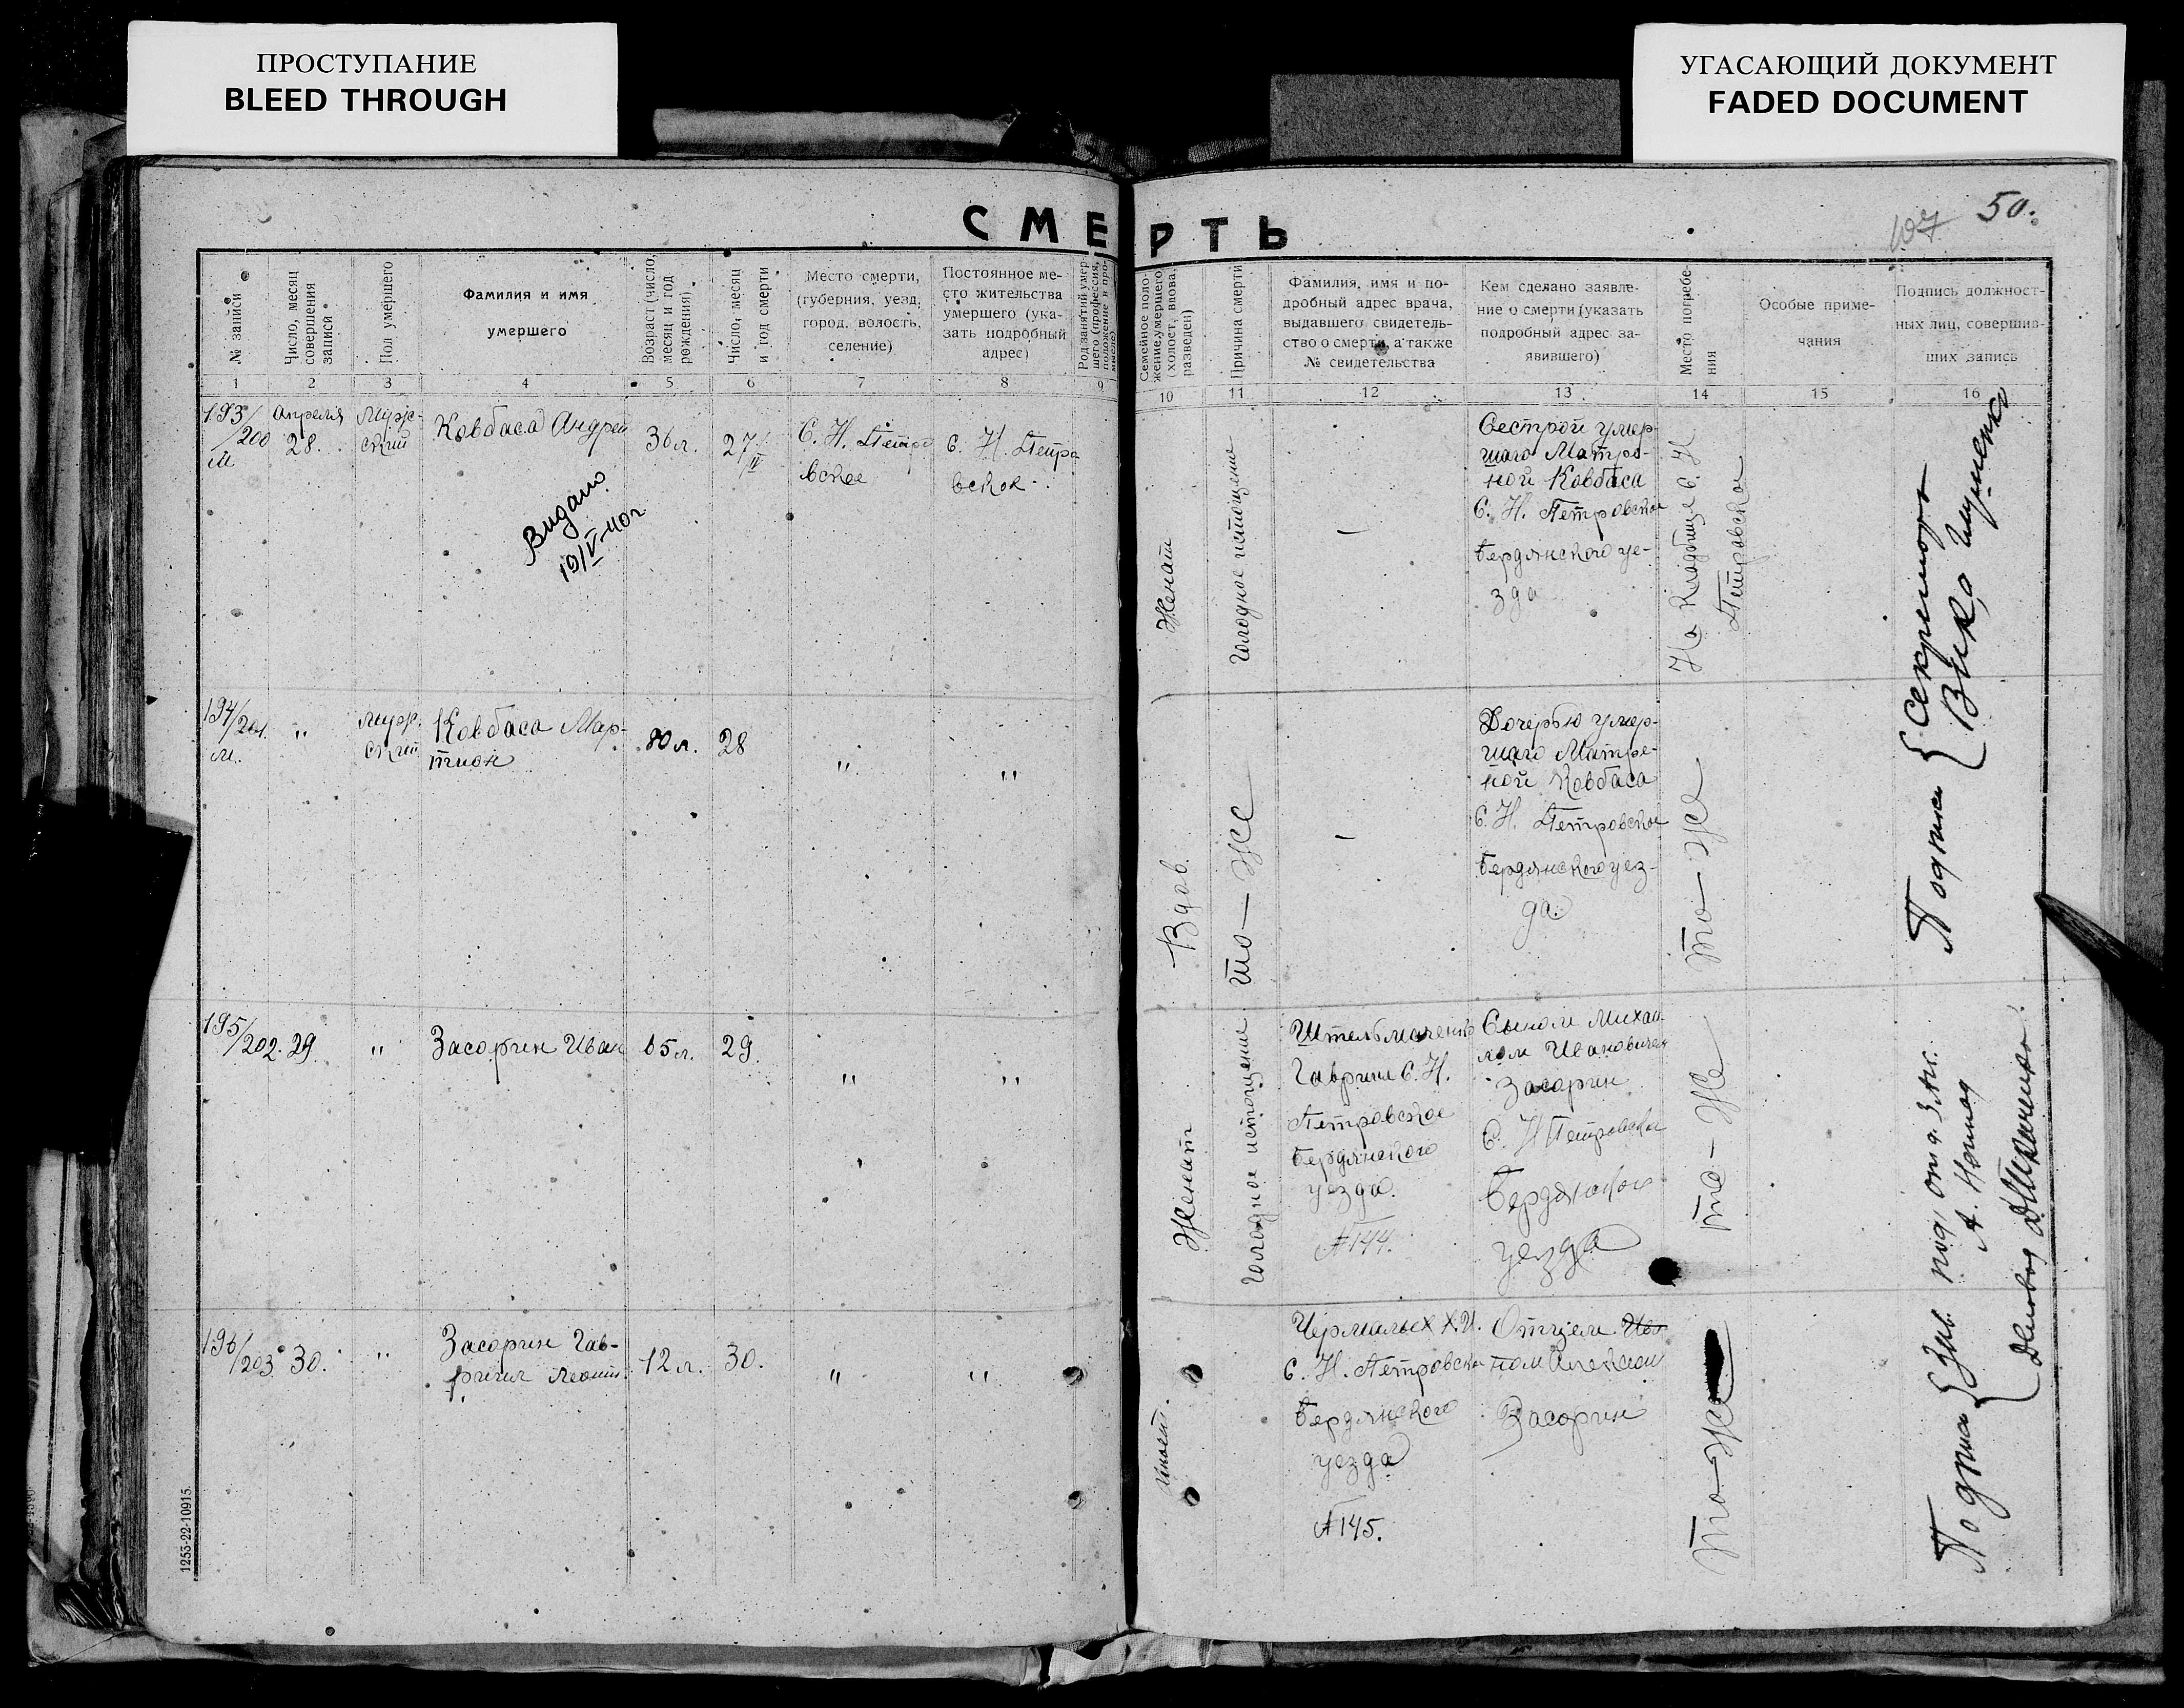 ПРОСТУПАНИЕ
BLEED THROUGH
УГАСАЮЩИЙ ДОКУМЕНТ
FADED DOCUMENT
107 50.
СМЕРТЬ
№ записи
Число, месяц
совершения
записи
Пол умершего
Фамилия и имя
умершего
Возраст (число,
месяц и год
рождения)
Число, месяц
и год смерти
Место смерти,
(губерния, уезд,
город, волость,
селение)
Постоянное ме-
сто жительства
умершего (ука-
зать подробный
адрес)
Род занятий умер-
шего (профессия,
положение в про-
мысле)
Семейное поло-
жение умершего
(холост, вдова,
разведен)
Причина смерти
Фамилия, имя и по-
дробный адрес врача,
выдавшего свидетель-
ство о смерти, а также
№ свидетельства
Кем сделано заявле-
ние о смерти (указать
подробный адрес за-
явившего)
Место погребе-
ния
Особые приме-
чания
Подпись должност-
ных лиц, совершив-
ших запись
1 2 3 4 5 6 7 8 9 10 11 12 13 14 15 16
193/
200
м
Апреля
28.
Муж-
ский
Ковбаса Андрей
Видано
19/V-40г
36 л.
27/IV
С. Н. Петро
вское
С. Н. Петро
вское
Женат
Голодное истощение
—
Сестрой умер-
шаго Матрё-
ной Ковбаса
С. Н. Петровское
Бердянского уе-
зда
На кладбище С. Н
Петровска
194/201.
м.
"
Муж.
ский
Ковбаса Мар-
тион
80 л.
28
"
"
Вдов.
то-же
—
Дочерью умер-
шаго Матре-
ной Ковбаса
С. Н. Петровское
Бердянского уез-
да.
то-же
Подписи { Секретарь
Вика
195/
202.
29.
"
Засорин Иван
65 л.
29.
"
"
Женат
Голодное истощение
Гаврил С. Н.
Петровское
Бердянского
уезда.
№144.
Сыном Михаи-
лом Ивановичем
Засорин
С. Н Петровска
Бердянског
уезда
то-же
196/
203
30.
"
Засорин Гав-
риил
12 л.
30.
"
"
Чермалых Х.И.
С. Н. Петровска
Бердянского
уезда
№145.
Отцем Ива
ном Алексеем
Засорин
то-же
Подписи { Зав. под, отд. Зап.
Деловод
1253-22-10915.